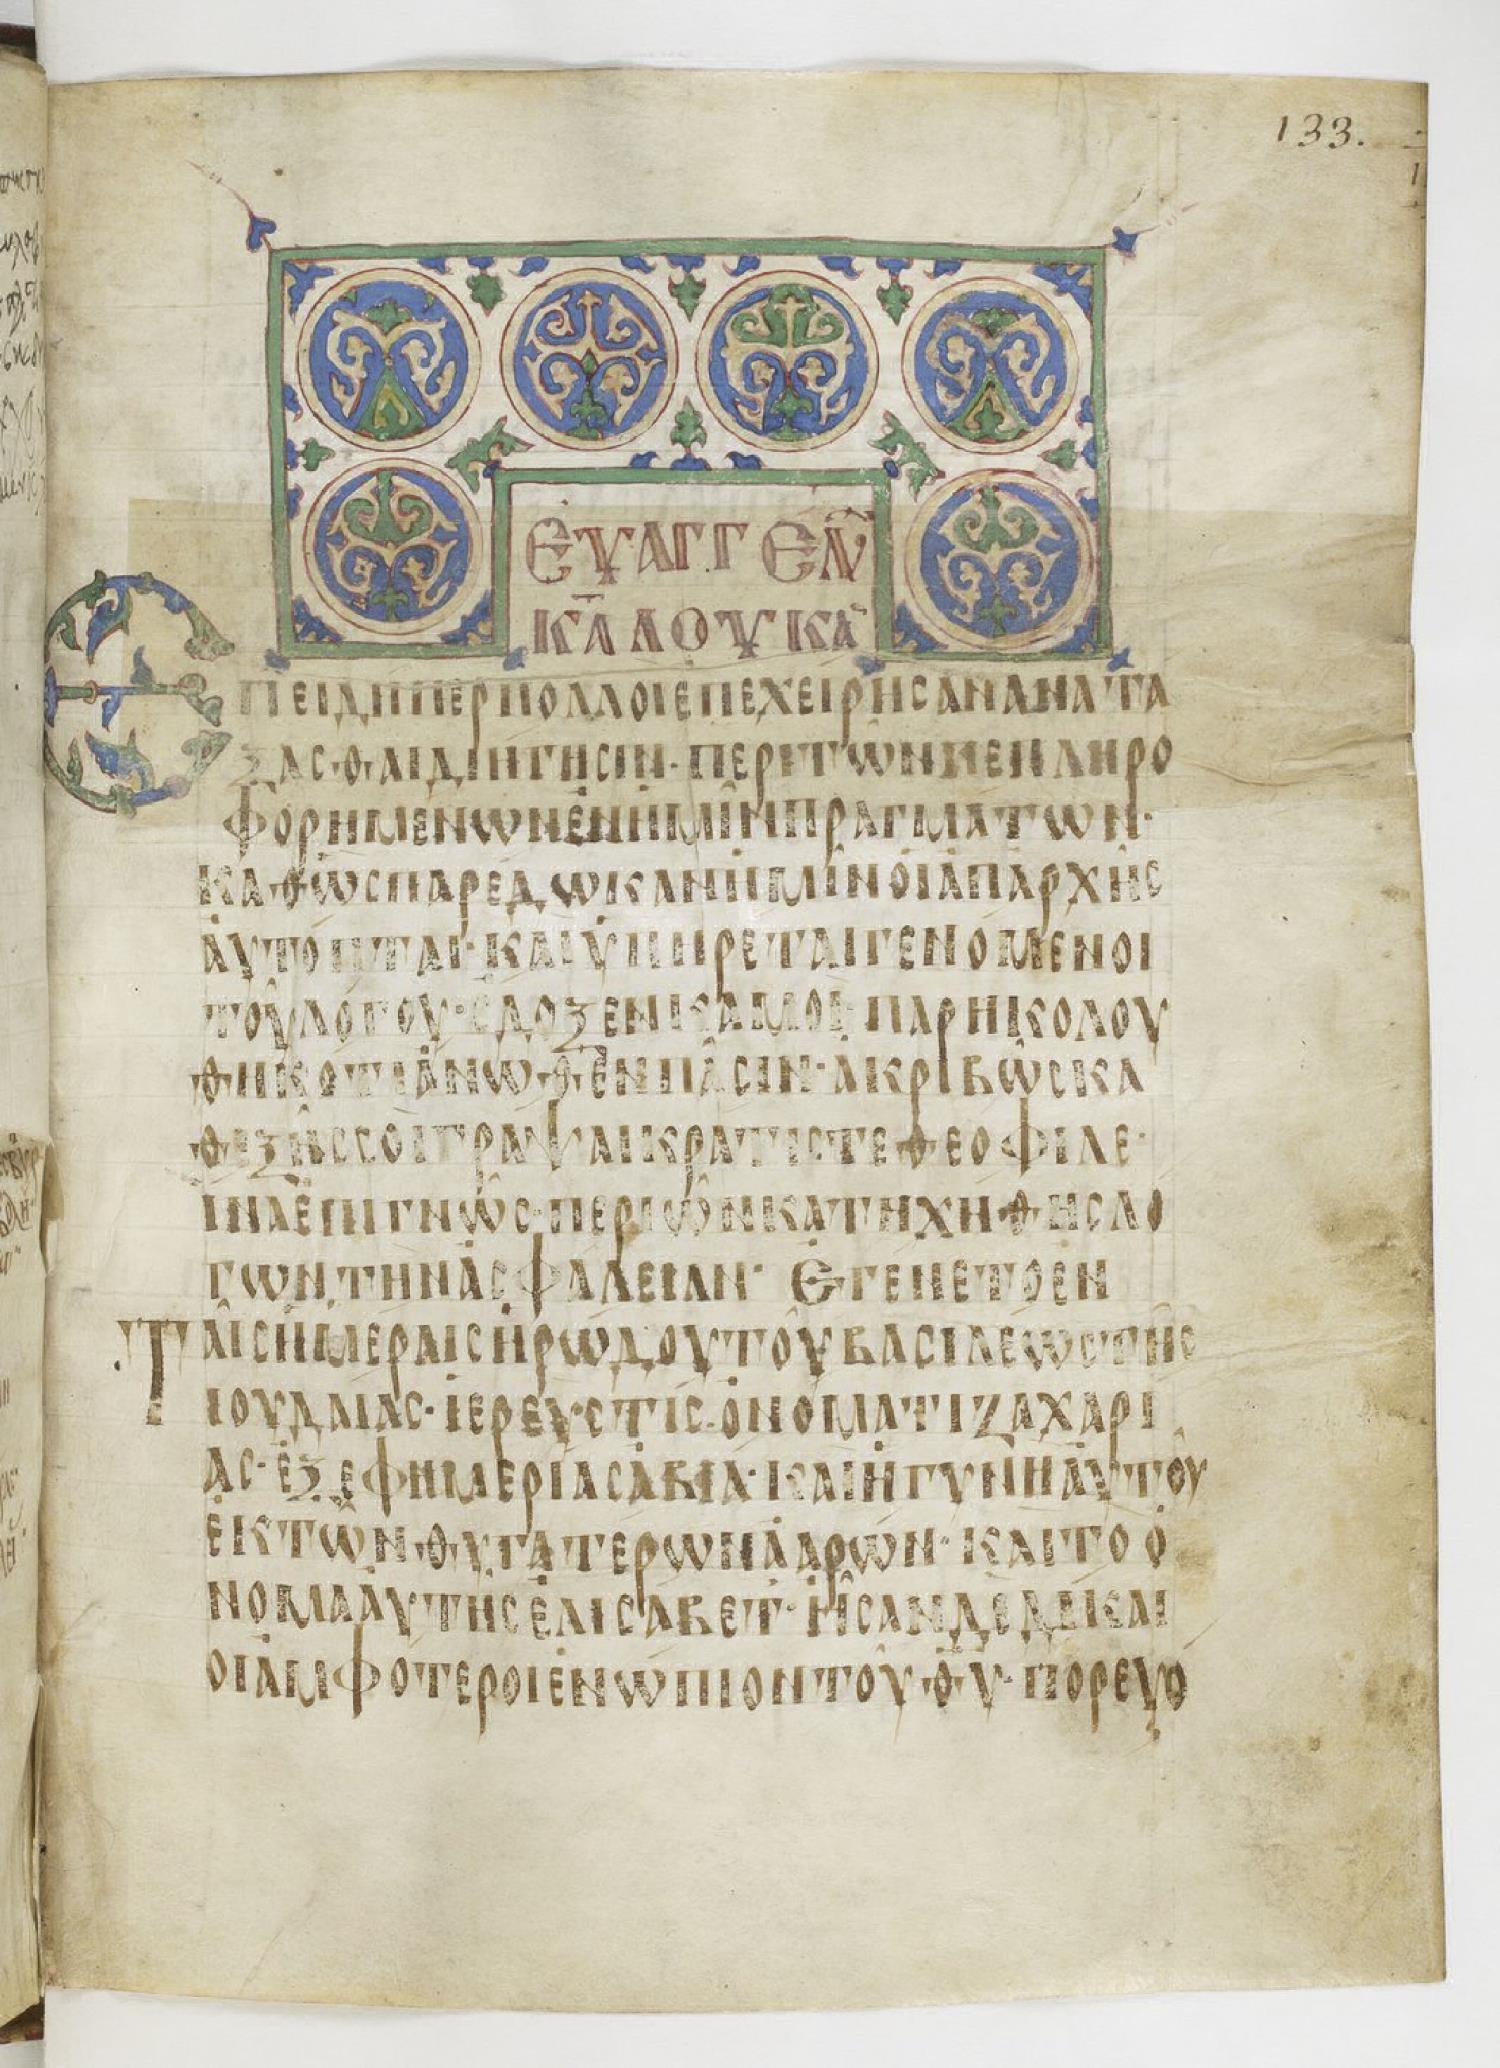 133.
ΕΥΑΓΓΕΛ
ΚΑ ΛΟΥΚΑ
ΕΠΕΙΔΗΠΕΡΠΟΛΛΟΙΕΠΕΧΕΙΡΗСΑΝΑΝΑΤΑ
ΞΑСΘΑΙΔΙΗΓΗСΙΝ·ΠΕΡΙΤΩ͂ΝΠΕΠΛΗΡΟ
ΦΟΡΗΜΕΝΩΝΕΝΗΜΙ͂ΝΠΡΑΓΜΑΤΩΝ·
ΚΑΘΩСΠΑΡΕΔΩΚΑΝΗΜΙ͂ΝΟΙΑΠΑΡΧΗ͂С
ΑΥΤΟΠΤΑΙ·ΚΑΙΥΠΗΡΕΤΑΙΓΕΝΟΜΕΝΟΙ
ΤΟΥ͂ΛΟΓΟΥ·ΕΔΟΞΕΝΚΑΜΟΙ·ΠΑΡΗΚΟΛΟΥ
ΘΗΚΟΤΙΑΝΩΘΕΝΠΑ͂СΙΝ·ΑΚΡΙΒΩ͂СΚΑ
ΘΕΞΗ͂ССΟΙΓΡΑΨΑΙΚΡΑΤΙСΤΕΘΕΟΦΙΛΕ·
ΙΝΑΕΠΙΓΝΩ͂С·ΠΕΡΙΩ͂ΝΚΑΤΗΧΗΘΗСΛΟ
ΓΩΝΤΗΝΑСΦΑΛΕΙΑΝ· ΕΓΕΝΕΤΟΕΝ
ΤΑΙ͂СΗΜΕΡΑΙСΗΡΩΔΟΥΤΟΥ͂ΒΑСΙΛΕΩСΤΗ͂С
ΙΟΥΔΑΙΑС·ΙΕΡΕΥСΤΙС·ΟΝΟΜΑΤΙΖΑΧΑΡΙ
ΑС·ΕΞΕΦΗΜΕΡΙΑСΑΒΙΑ·ΚΑΙΗΓΥΝΗΑΥΤΟΥ͂
ΕΚΤΩ͂ΝΘΥΓΑΤΕΡΩΝΑΑΡΩΝ·ΚΑΙΤΟΟ
ΝΟΜΑΑΥΤΗ͂СΕΛΙСΑΒΕΤ·ΗСΑΝΔΕΔΙΚΑΙ
ΟΙΑΜΦΟΤΕΡΟΙΕΝΩΠΙΟΝΤΟΥ͂Θ̅Υ̅·ΠΟΡΕΥΟ